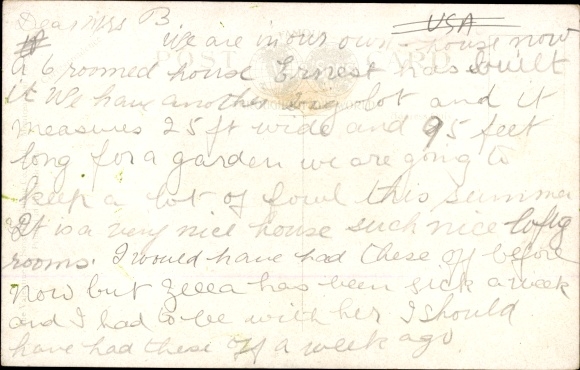 Dear Mrs B
USA
We are in our own house now
POST CARD
a 6 roomed house Ernest has built
it We have another big lot and it
measures 25 ft wide and 95 feet
long for a garden we are going to
keep a lot of fowl this summer
It is a very nice house such nice lofty
rooms. I would have had these off before
now but Zella has been sick a week
and I had to be with her I should
have had these off a week ago